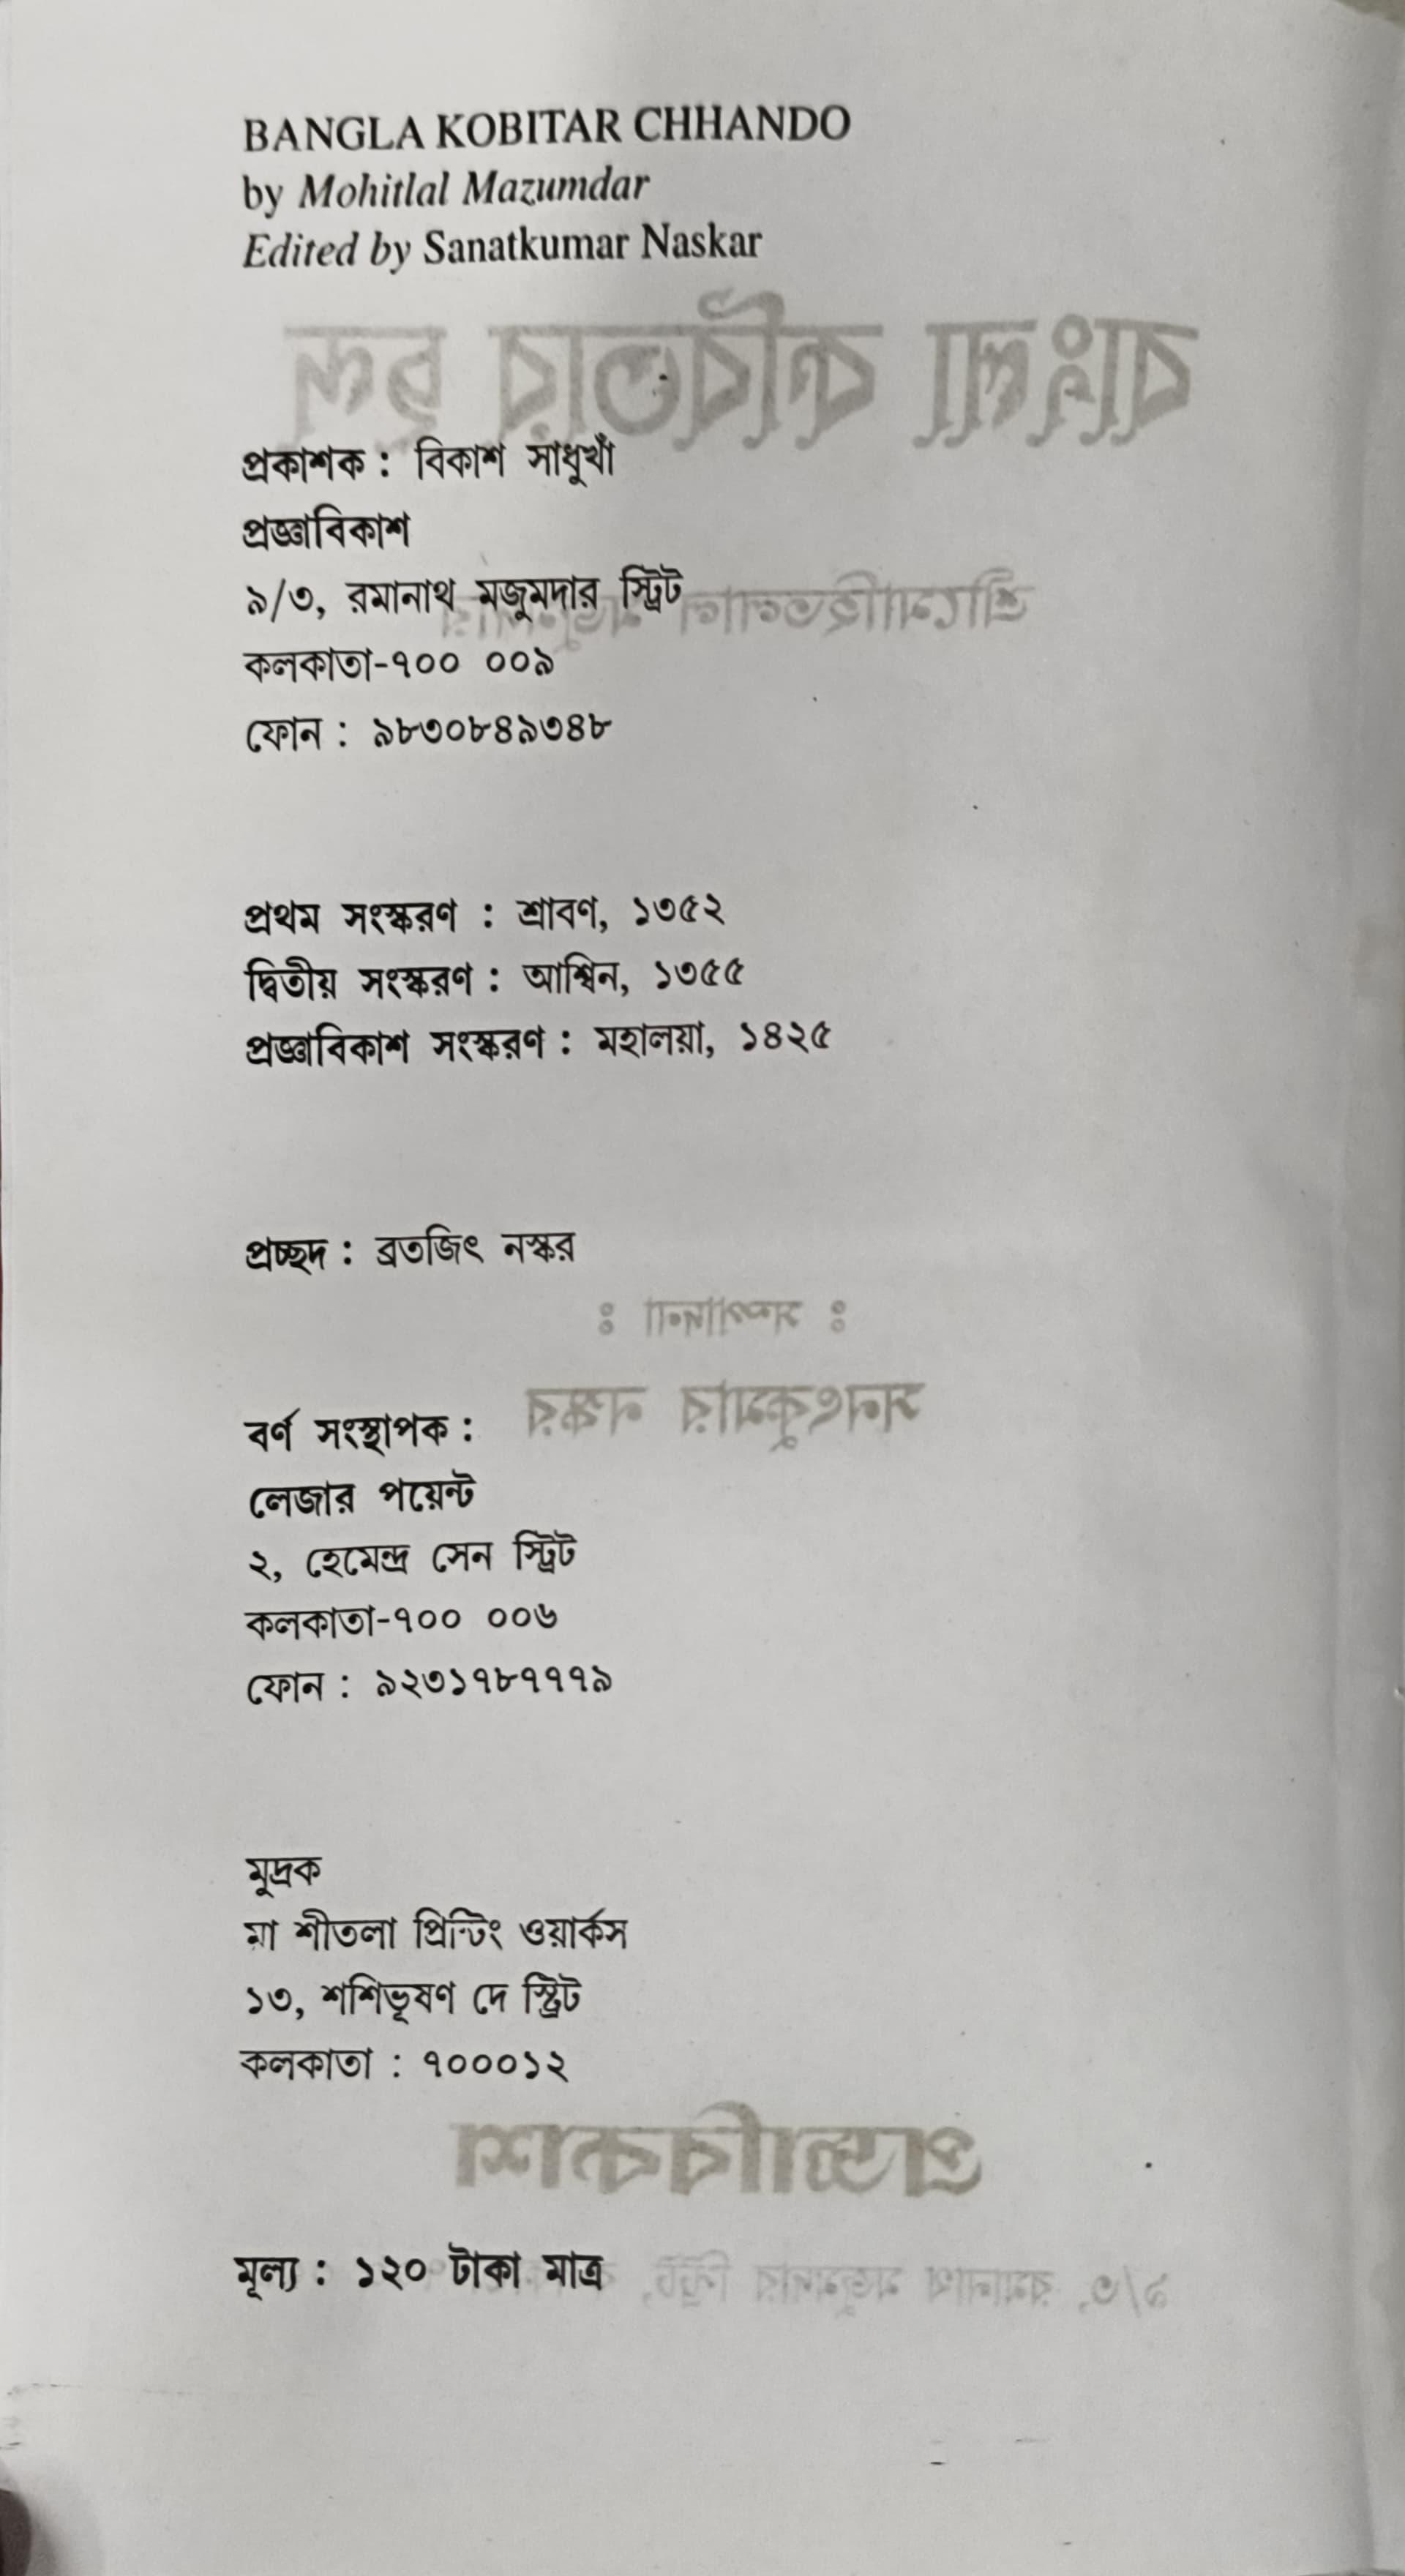 BANGLA KOBITAR CHHANDO
by Mohitlal Mazumdar
Edited by Sanatkumar Naskar
প্রকাশক : বিকাশ সাধুখাঁ
প্রজ্ঞাবিকাশ
৯/৩, রমানাথ মজুমদার স্ট্রিট
কলকাতা-৭০০ ০০৯
ফোন : ৯৮৩০৮৪৯৩৪৮
প্রথম সংস্করণ : শ্রাবণ, ১৩৫২
দ্বিতীয় সংস্করণ : আশ্বিন, ১৩৫৫
প্রজ্ঞাবিকাশ সংস্করণ : মহালয়া, ১৪২৫
প্রচ্ছদ : ব্রতজিৎ নস্কর
বর্ণ সংস্থাপক :
লেজার পয়েন্ট
২, হেমেন্দ্র সেন স্ট্রিট
কলকাতা-৭০০ ০০৬
ফোন : ৯২৩১৭৮৭৭৭৯
মুদ্রক
মা শীতলা প্রিন্টিং ওয়ার্কস
১৩, শশিভূষণ দে স্ট্রিট
কলকাতা : ৭০০০১২
মূল্য : ১২০ টাকা মাত্র